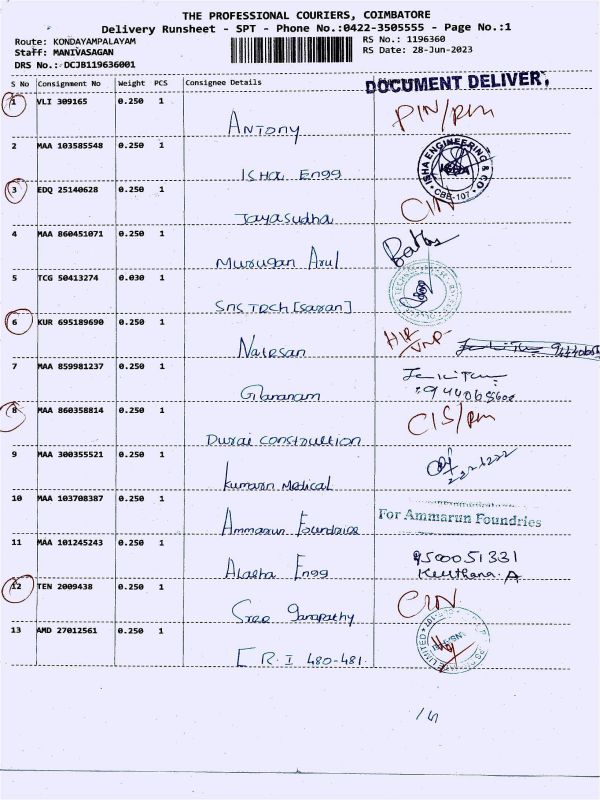 THE PROFESSIONAL COURIERS, COIMBATORE
Delivery Runsheet - SPT - Phone No.:0422-3505555 - Page No.:1
Route: KONDAYAMPALAYAM
RS No.: 1196360
Staff: MANIVASAGAN
RS Date: 28-Jun-2023
DRS No.: DCJB119636001
S No Consignment No Weight PCS Consignee Details
DOCUMENT DELIVER
1 VLI 309165 0.250 1 Antony PIN/RM
2 MAA 103585548 0.250 1 Isha Engg
ISHA ENGINEERING & CO CBE-107
3 EDQ 25140628 0.250 1 Jayasudha CIN
4 MAA 860451071 0.250 1 Murugan Arul
5 TCG 50413274 0.030 1 SNS Tech [Saran]
6 KUR 695189690 0.250 1 Natesan
7 MAA 859981237 0.250 1
8 MAA 860358814 0.250 1 Durai Construction CIS/RM
9 MAA 300355521 0.250 1 Kumaran Medical
10 MAA 103708387 0.250 1 Ammarun Foundries
For Ammarun Foundries
11 MAA 101245243 0.250 1 Engg 9500051331
Keerthana.A
12 TEN 2009438 0.250 1 Sree Ganapathy CIN
13 AMD 27012561 0.250 1 480-481